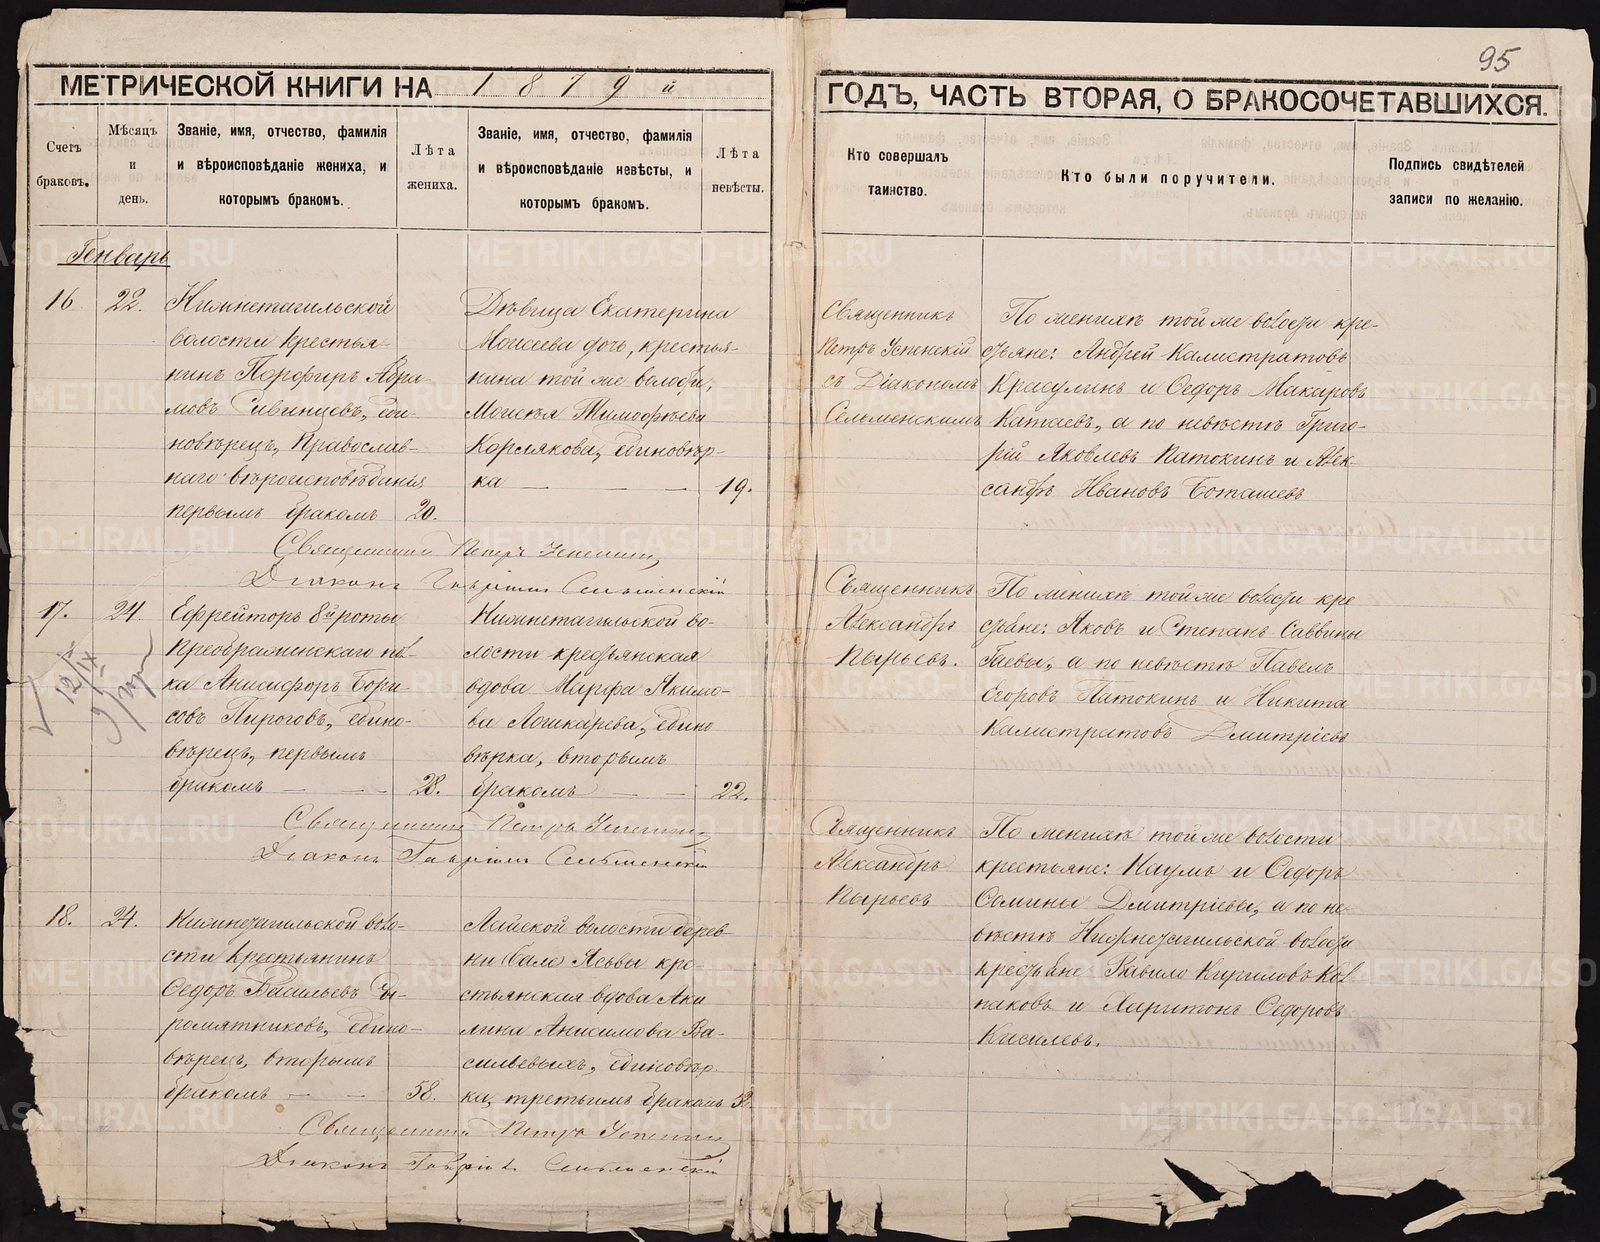 95
МЕТРИЧЕСКОЙ КНИГИ НА 1879 й
ГОДЪ, ЧАСТЬ ВТОРАЯ, О БРАКОСОЧЕТАВШИХСЯ.
Счетъ
браковъ.
Мѣсяцъ
и
день.
Званіе, имя, отчество, фамилія
и вѣроисповѣданіе жениха, и
которымъ бракомъ.
Лѣта
жениха.
Званіе, имя, отчество, фамилія
и вѣроисповѣданіе невѣсты, и
которымъ бракомъ.
Лѣта
невѣсты.
Кто совершалъ
таинство.
Кто были поручители.
Подпись свидѣтелей
записи по желанію.
Генварь
16
22.
Нижнетагильской
волости крестья-
нинъ Порфиръ Абра-
мовъ Сивинцевъ, еди-
новѣрецъ, православ-
наго вѣроисповѣданія
первымъ бракомъ
20.
Дѣвица Екатерина
Моисеева дочь, крестья-
нина той же волости,
Моисея Тимофѣева
Корлякова, единовѣр-
ка
19.
Священникъ
Петръ Успенскій
съ Діакономъ
Сельменскимъ
По женихѣ той же волости кре-
стьяне: Андрей Калистратовъ
Красулинъ и Ѳедоръ Макаровъ
Катаевъ, а по невѣстѣ Григо-
рій Яковлевъ Патокинъ и Алек-
сандръ Ивановъ Боташевъ
Священникъ Петръ Успенскій,
Діаконъ Гавріилъ Сельменскій
17.
24.
Ефрейторъ 8й роты
Преображенскаго пол-
ка Анисифоръ Бори-
совъ Пироговъ, едино-
вѣрецъ, первымъ
бракомъ
28.
Нижнетагильской во-
лости крестьянская
вдова Марѳа Якимо-
ва Лошкарева, едино
вѣрка, вторымъ
бракомъ
22.
Священникъ
Александръ
Пырьевъ.
По женихѣ той же волости кре
стьяне: Яковъ и Степанъ Саввины
Гаевы, а по невѣстѣ Павелъ
Егоровъ Патокинъ и Никита
Калистратовъ Дмитріевъ
Священникъ Петръ Успенскій,
Діаконъ Гавріилъ Сельменскій
18.
24.
Нижнетагильской воло-
сти крестьянинъ
Ѳедоръ Васильевъ
едино-
вѣрецъ, вторымъ
бракомъ
58.
Лайской волости дерев
ни Ясьвы кре-
стьянская вдова Аки
лина Анисимова Ва-
сильевыхъ, единовѣр-
ка, третьимъ бракомъ
Священникъ
Александръ
Пырьевъ
По женихѣ той же волости
крестьяне: Наумъ и Ѳедоръ
Ѳомины Дмитріевы, а по не-
вѣстѣ Нижнетагильской волости
крестьяне Вавило Кириловъ Кол-
паковъ и Харитонъ Ѳедоровъ
Киселевъ.
Священникъ Петръ Успенскій,
Діаконъ Гавріилъ Сельменскій
METRIKI.GASO-URAL.RU